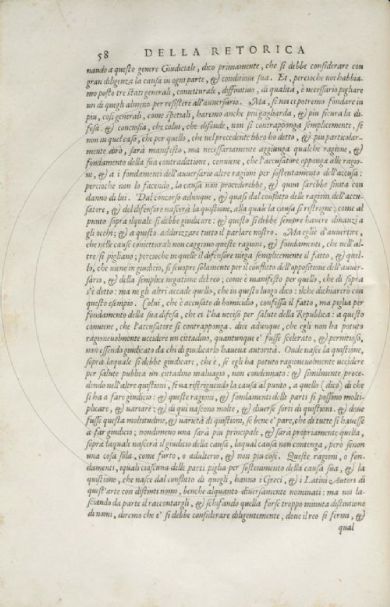 58 DELLA RETORICA
nando a questo genere Giudiciale, dico primamente, che si debbe considerare con
gran diligenza la causa in ogni parte, & conditione sua. Et, percioche noi habbia
mo posto tre stati generali, conietturale, diffinitivo, di qualità, è necessario pigliare
un di quegli almeno per resistere all'auversario. Ma, se noi ci potremo fondare in
piu, cosi generali, come spetiali, haremo anche piu gagliarda, & piu sicura la di
fesa, & concosia, che colui, che difende, non si contrapponga semplicemente, si
non in quel caso, che per quello, che nel precedente libro ho detto, & piu particolar-
mente dirò, sarà manifesto, ma necessariamente aggiunga qualche ragione, &
fondamento della sua contradittione, conviene, che l'accusatore opponga alle ragio-
ni, & a i fondamenti dell'auversario altre ragioni per sostentamento dell'accusa:
percioche non lo facendo, la causa non procederebbe, & quasi sarebbe finita con
danno di lui. Dal concorso adunque, & quasi dal conflitto delle ragioni dell'accu-
satore, & del difensore nascerà la quistione, alla quale la causa si ristrigne: come al
punto sopra il quale si habbia giudicare: & questo si debbe sempre havere dinanzi a
gli occhi; & a questo addirizzare tutto il parlare nostro. Ma egli è d'avvertire,
che nelle cause conietturali non caggiono queste ragioni, & fondamenti, che nell'al-
tre si pigliano; percioche in quelle il difensore niega semplicemente il fatto, & quel-
lo, che viene in giudicio, si scuopre solamente per il conflitto dell'appositione dell'auver-
sario, & della semplice negatione del reo; come è manifesto per quello, che di sopra
s'è detto: ma ne gli altri accade quello, che in questo luogo dico: il che dichiarirò con
questo esempio. Colui, che è accusato di homicidio, confessa il fatto, ma piglia per
fondamento della sua difesa, che ei l'ha ucciso per salute della Republica: a questo
conviene, che l'accusatore si contrapponga. dice adunque, che egli non ha potuto
ragionevolmente uccidere un cittadino, quantunque e' fusse scelerato, & pernitioso,
non essendo giudicato da chi di giudicarlo haueva autorità. Onde nasce la quistione,
sopra la quale si debbe giudicare, che è, se egli ha potuto ragionevolmente uccidere
per salute publica un cittadino malvagio, non condennato: & similmente proce-
dendo nell'altre quistioni, si va ristrignendo la causa al punto, a quello (dico) di che
si ha a fare giudicio: & queste ragioni, & fondamenti delle parti si possono molti-
plicare, & variare; & di qui nascono molte, & diverse sorti di quistioni. & dove
fusse questa moltitudine, & varietà di quistioni, se bene e' pare, che di tutte si havesse
a far giudicio; nondimeno una sarà piu principale, & sarà propriamente quella,
sopra la quale nascerà il giudicio della causa, la qual causa non contenga, però senon
una cosa sola, come furto, o adulterio, & non piu cose. Queste ragioni, o fon-
damenti, i quali ciascuna delle parti piglia per sostenimento della causa sua, & la
quistione, che nasce dal conflitto di quegli, hanno i Greci, & i Latini Autori di
quest'arte con distinti nomi, benche alquanto diversamente nominati: ma noi la-
sciando da parte il raccontargli, & schifando quella forse troppo minuta distintione
di nomi, diremo che e' si debbe considerare diligentemente, dove il reo si ferma, &
qual